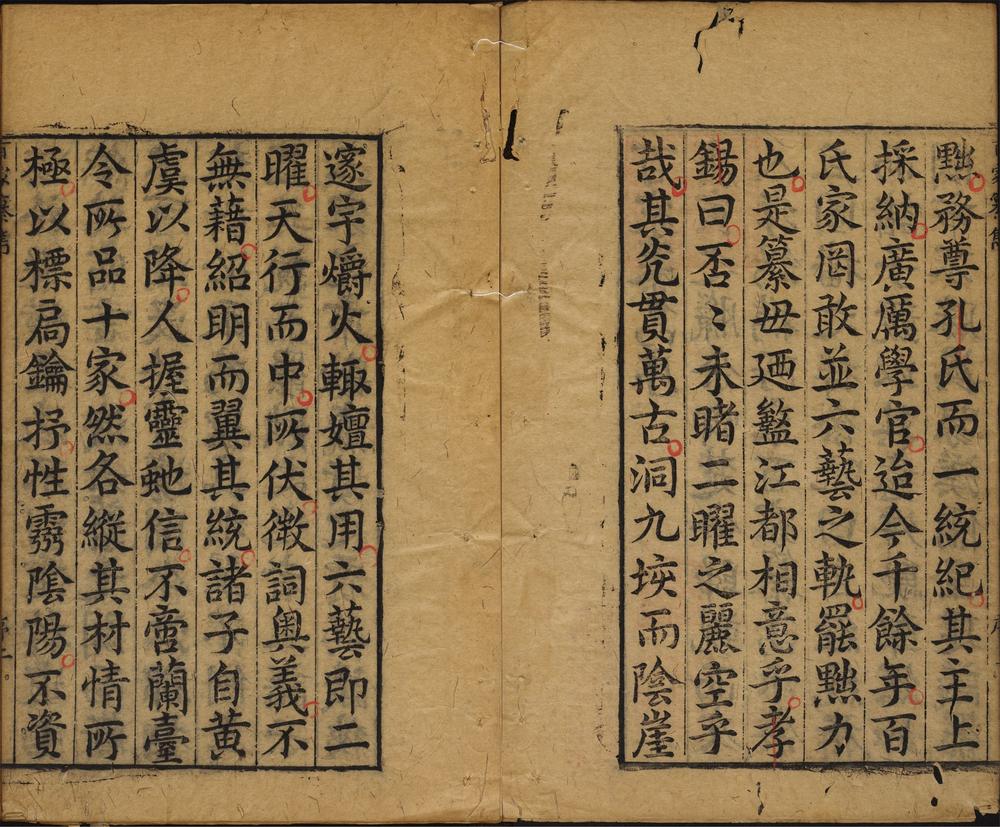 黜務尊孔氏而一統紀其主上
採納廣厲學官迨今千餘年百
氏家罔敢並六藝之軌罷黜力
也是纂毋廼盭江都相意乎孝
錫曰否〻未睹二曜之麗空乎
哉其光貫萬古洞九垓而陰崖
邃宇爝火輙嬗其用六藝即二
曜天行而中所伏微詞奥義不
無藉紹明而翼其統諸子自黄
虞以降人握靈虵信不啻蘭臺
令所品十家然各縱其材情所
極以標扃鑰抒性霛陰陽不資